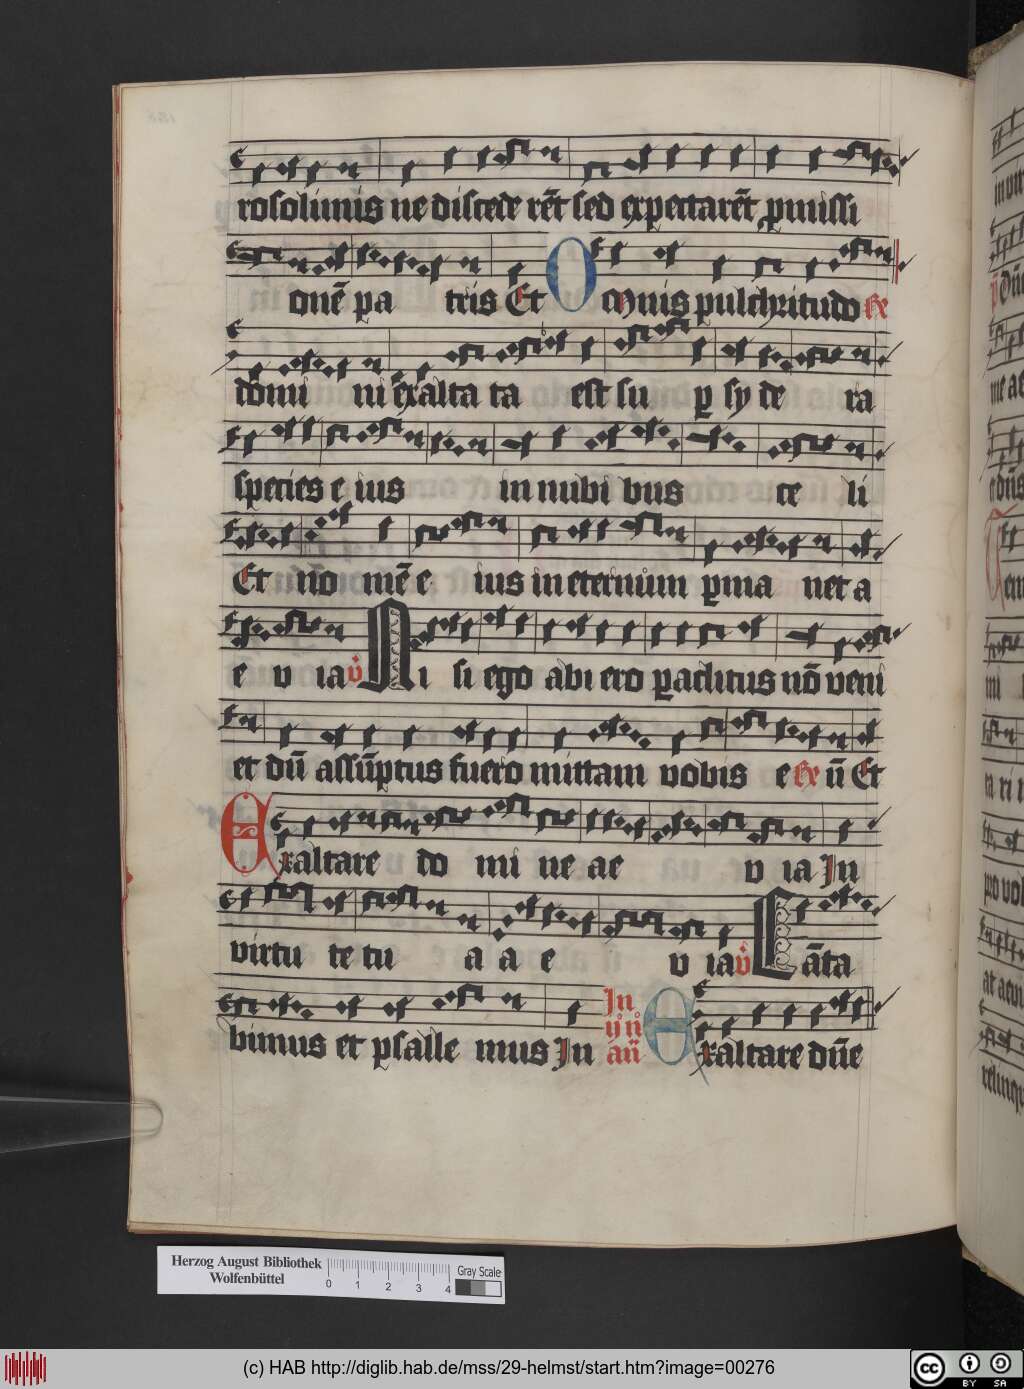 rosolimis ne discede rēt sed expectarēt ꝓmissi
onē pa tris Et Omnis pulchritudo ℞
domi ni exalta ta est su ꝑ sy de ra
species e ius in nubi bus ce li
Et no mē e ius in eternum ꝑma net a
e v ia v̊ Ni si ego abi ero ꝑaclitus nō veni
et dū assūptus fuero mittam vobis e ℞ ū Et
Exaltare do mi ne ae v ia In
virtu te tu a a e v ia v̊ Cāta
bimus et psalle mus In
In
ij n̊
an̄ Exaltare dn̄e
Herzog August Bibliothek
Wolfenbüttel
0 1 2 3 4
Gray Scale
(c) HAB http://diglib.hab.de/mss/29-helmst/start.htm?image=00276
cc BY SA